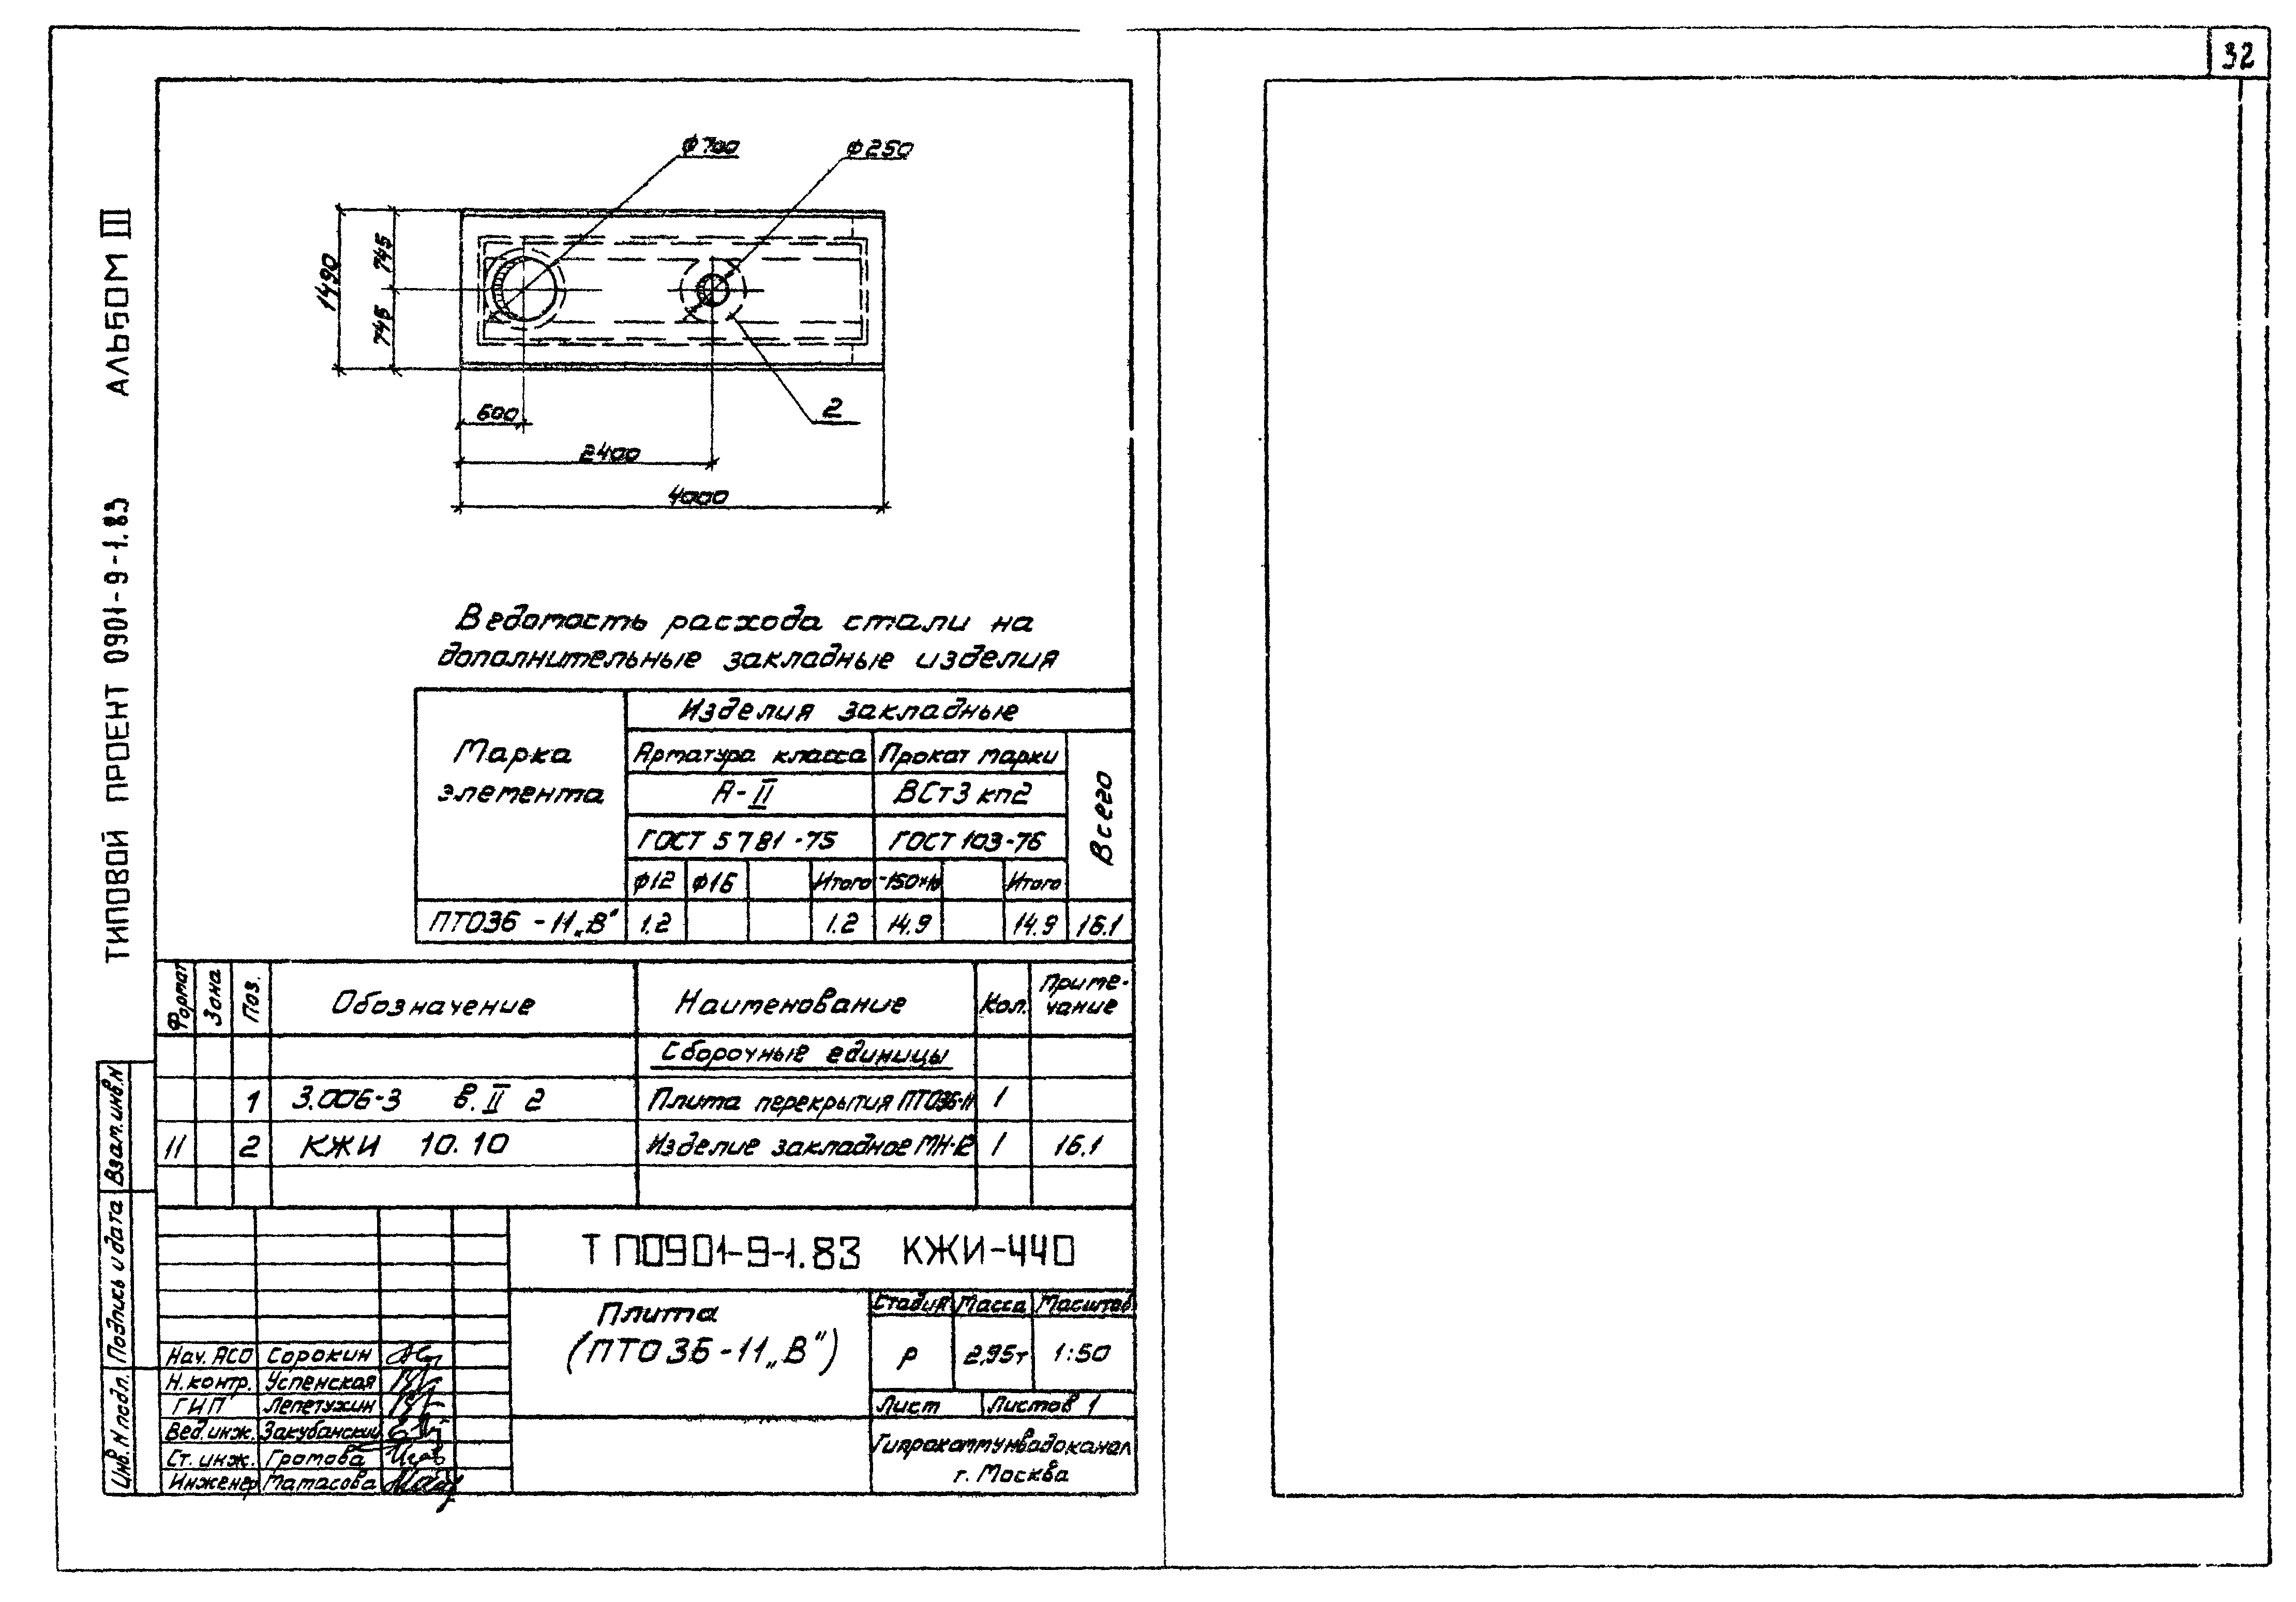 32
АЛЬБОМ III
ТИПОВОЙ ПРОЕКТ 0901-9-1.83
ф700
ф250
1490
745
745
600
2
2400
4000
Ведомость расхода стали на
дополнительные закладные изделия
Марка элемента
Изделия закладные
Арматура класса
Прокат марки
Всего
А-II
ВСт3 кп2
ГОСТ 5781-75
ГОСТ 103-76
ф12 ф16 Итого -150×10 Итого
ПТО36-11„В" 1.2 1.2 14.9 14.9 16.1
Формат Зона Поз. Обозначение Наименование Кол. Примечание
Сборочные единицы
1 3.006-3 в.II 2 Плита перекрытия ПТО36-11 1
11 2 КЖИ 10.10 Изделие закладное МН-12 1 16.1
Взам.инв.N
Подпись и дата
Инв.N подл.
ТП0901-9-1.83 КЖИ-440
Плита
(ПТО36-11„В")
Стадия Масса Масштаб
Р 2,95т 1:50
Лист Листов 1
Гипрокоммунводоканал
г. Москва
Нач. АСО Сорокин
Н.контр. Успенская
ГИП Лепетухин
Вед.инж. Закубанский
Ст. инж. Громова
Инженер Матасова